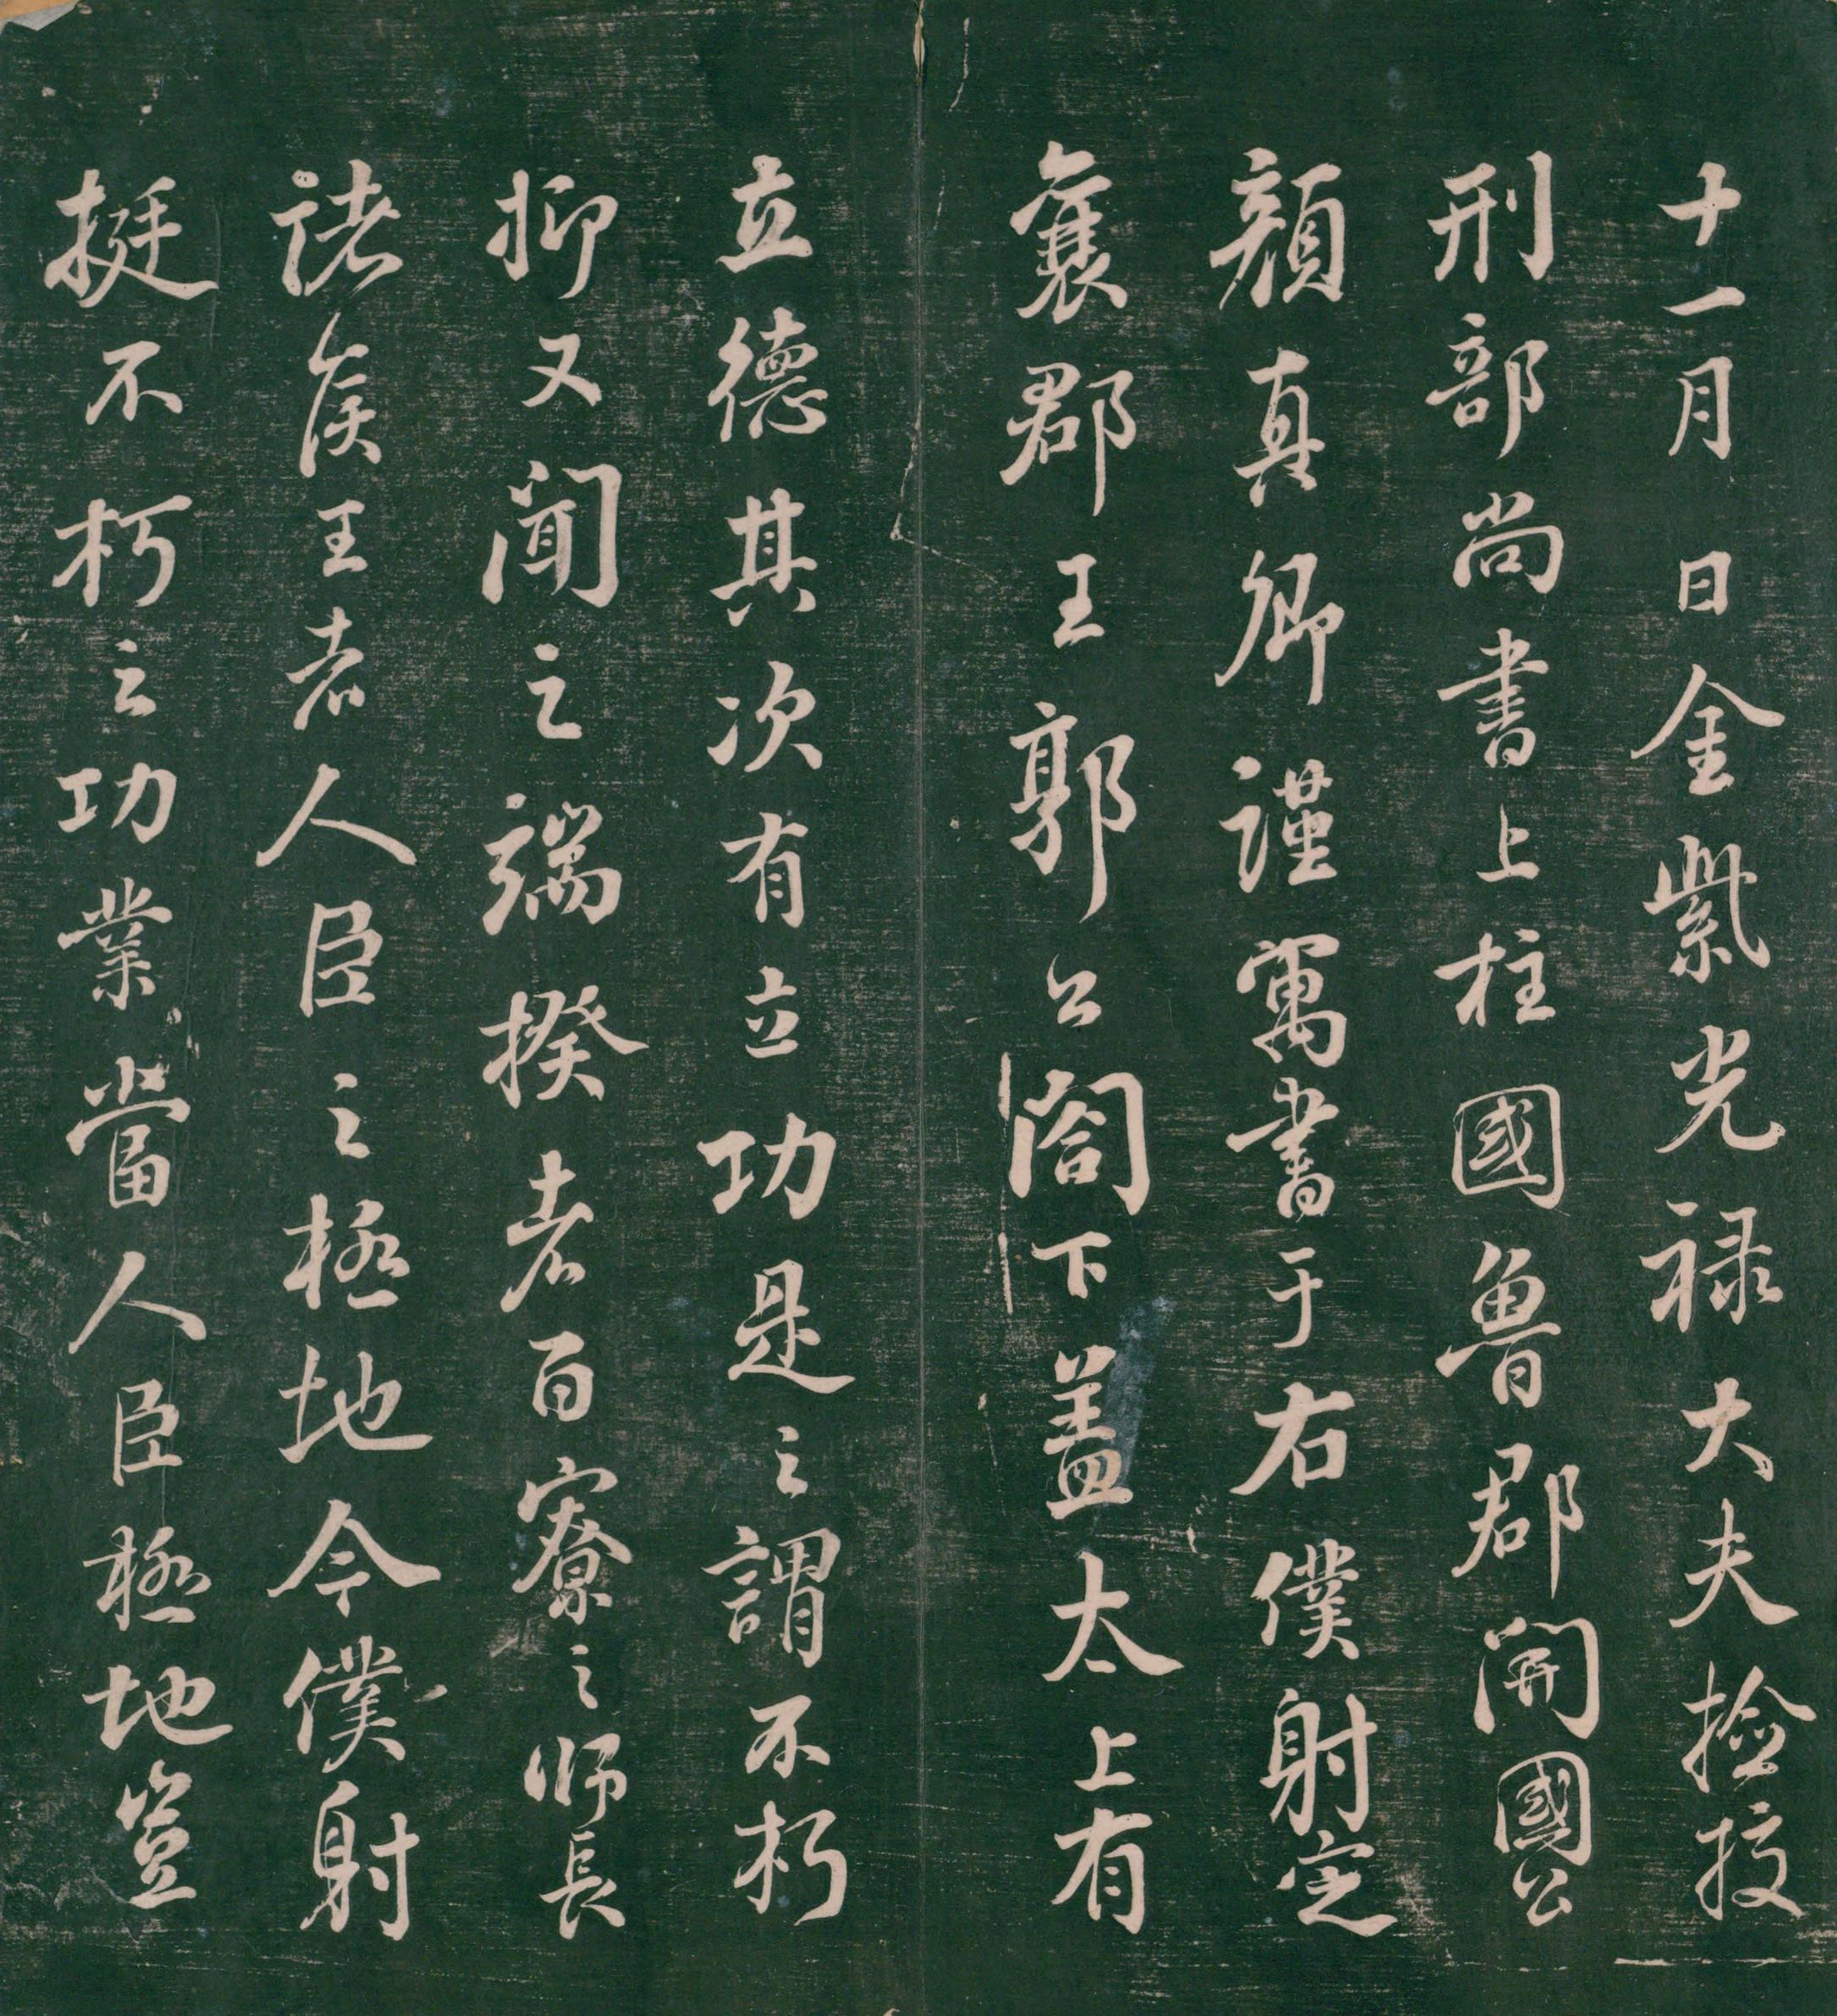 十一月日金紫光禄大夫撿挍
刑部尚書上柱國魯郡開國公
顔真卿謹寓書于右僕射定
襄郡王郭公閤下蓋太上有
立德其次有立功是之謂不朽
抑又聞之端揆者百寮之師長
諸侯王者人臣之極地今僕射
挺不朽之功業當人臣極地豈